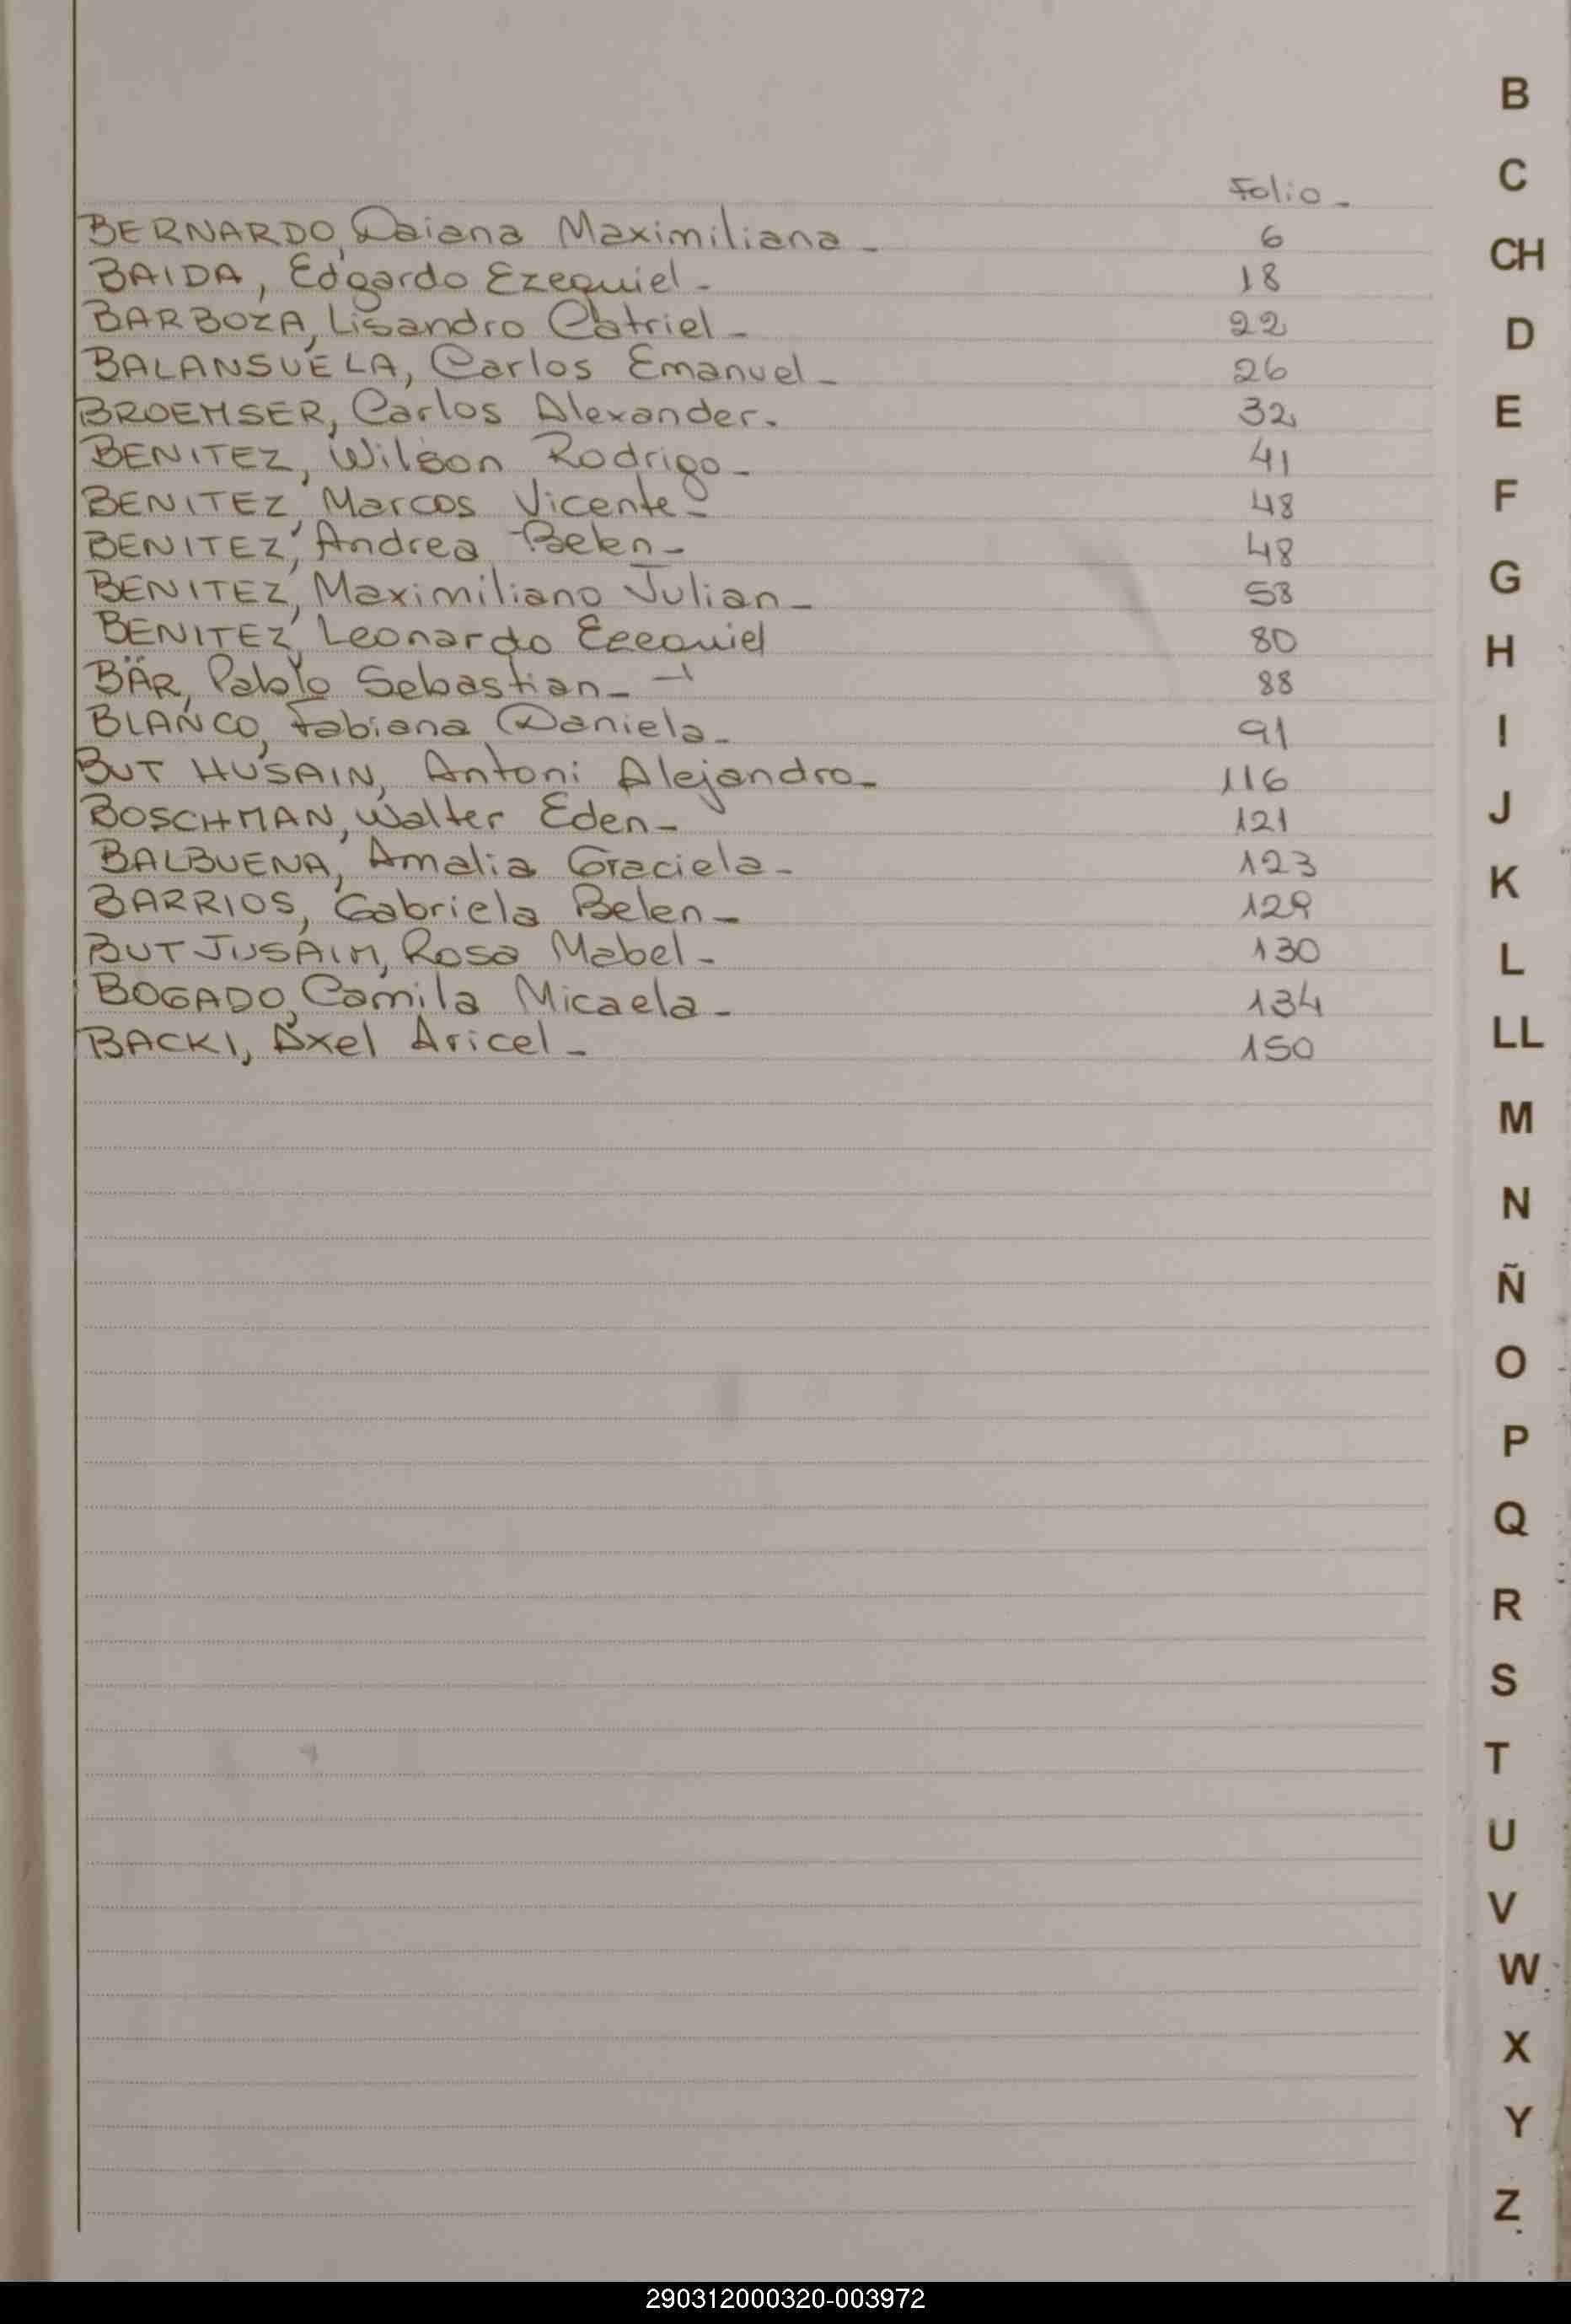 Folio -
BERNARDO, Daiana Maximiliana - 6
BAIDA, Edgardo Ezequiel - 18
BARBOZA, Lisandro Catriel - 22
BALANSUELA, Carlos Emanuel - 26
BROEMSER, Carlos Alexander. 32
BENITEZ, Wilson Rodrigo - 41
BENITEZ, Marcos Vicente - 48
BENITEZ, Andrea Belen - 48
BENITEZ, Maximiliano Julian - 58
BENITEZ, Leonardo Ezequiel 80
BÄR, Pablo Sebastian - 88
BLANCO, Fabiana Daniela - 91
BUT HUSAIN, Antoni Alejandro - 116
BOSCHMAN, Walter Eden - 121
BALBUENA, Amalia Graciela - 123
BARRIOS, Gabriela Belen - 129
BUT JUSAIM, Rosa Mabel - 130
BOGADO, Camila Micaela - 134
BACKI, Axel Aricel - 150
B
C
CH
D
E
F
G
H
I
J
K
L
LL
M
N
Ñ
O
P
Q
R
S
T
U
V
W
X
Y
Z
290312000320-003972